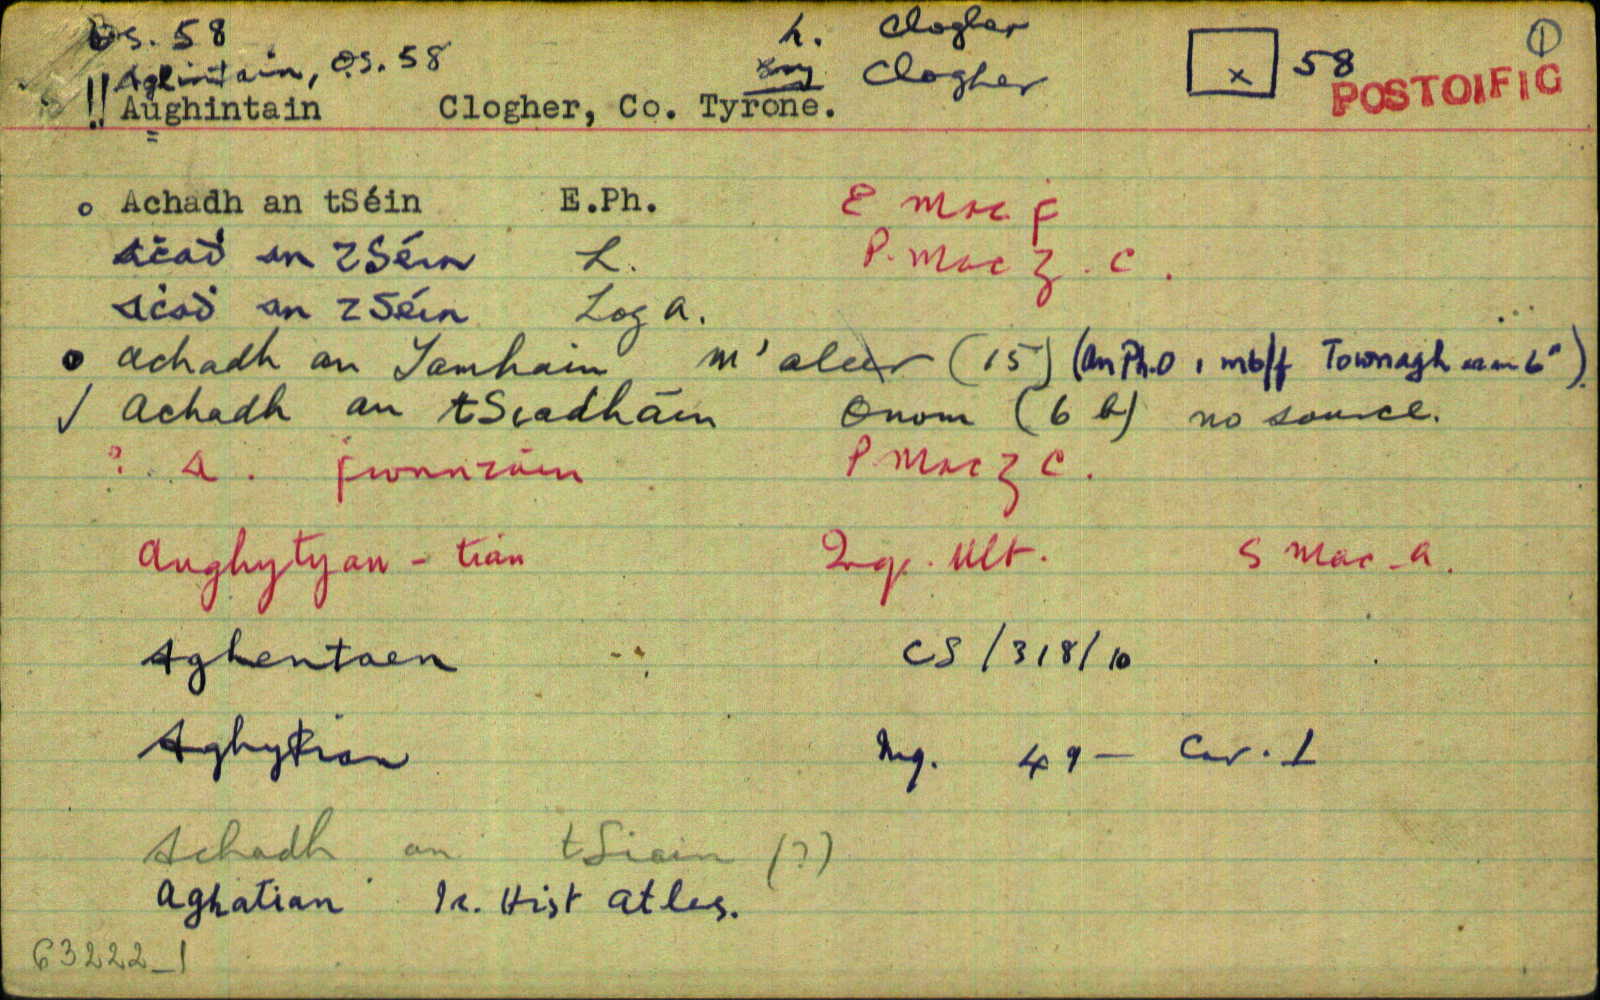 OS. 58 L. Clogher
Aghintain, OS. 58 Bny Clogher x 58 1
!! Aughintain Clogher, Co. Tyrone. POSTOIFIG
o Achadh an tSéin E.Ph. E Mac F
Aċaḋ an tSéin L. P. Mac G. C.
Aċaḋ an tSéin Log A.
Achadh an Tamhain (15) (An Ph.O i mb/f Townagh 6")
✓ Achadh an tSiadháin Onom (6 b) no source.
? A. Fionntáin P Mac G C.
Aughytyan - tian Inq. Ult. S Mac A.
Aghentaen CS/318/10
Aghytian Inq. 49 - Car. I
Achadh an tSiain (?)
Aghatian Ir. Hist Atlas.
63222_1